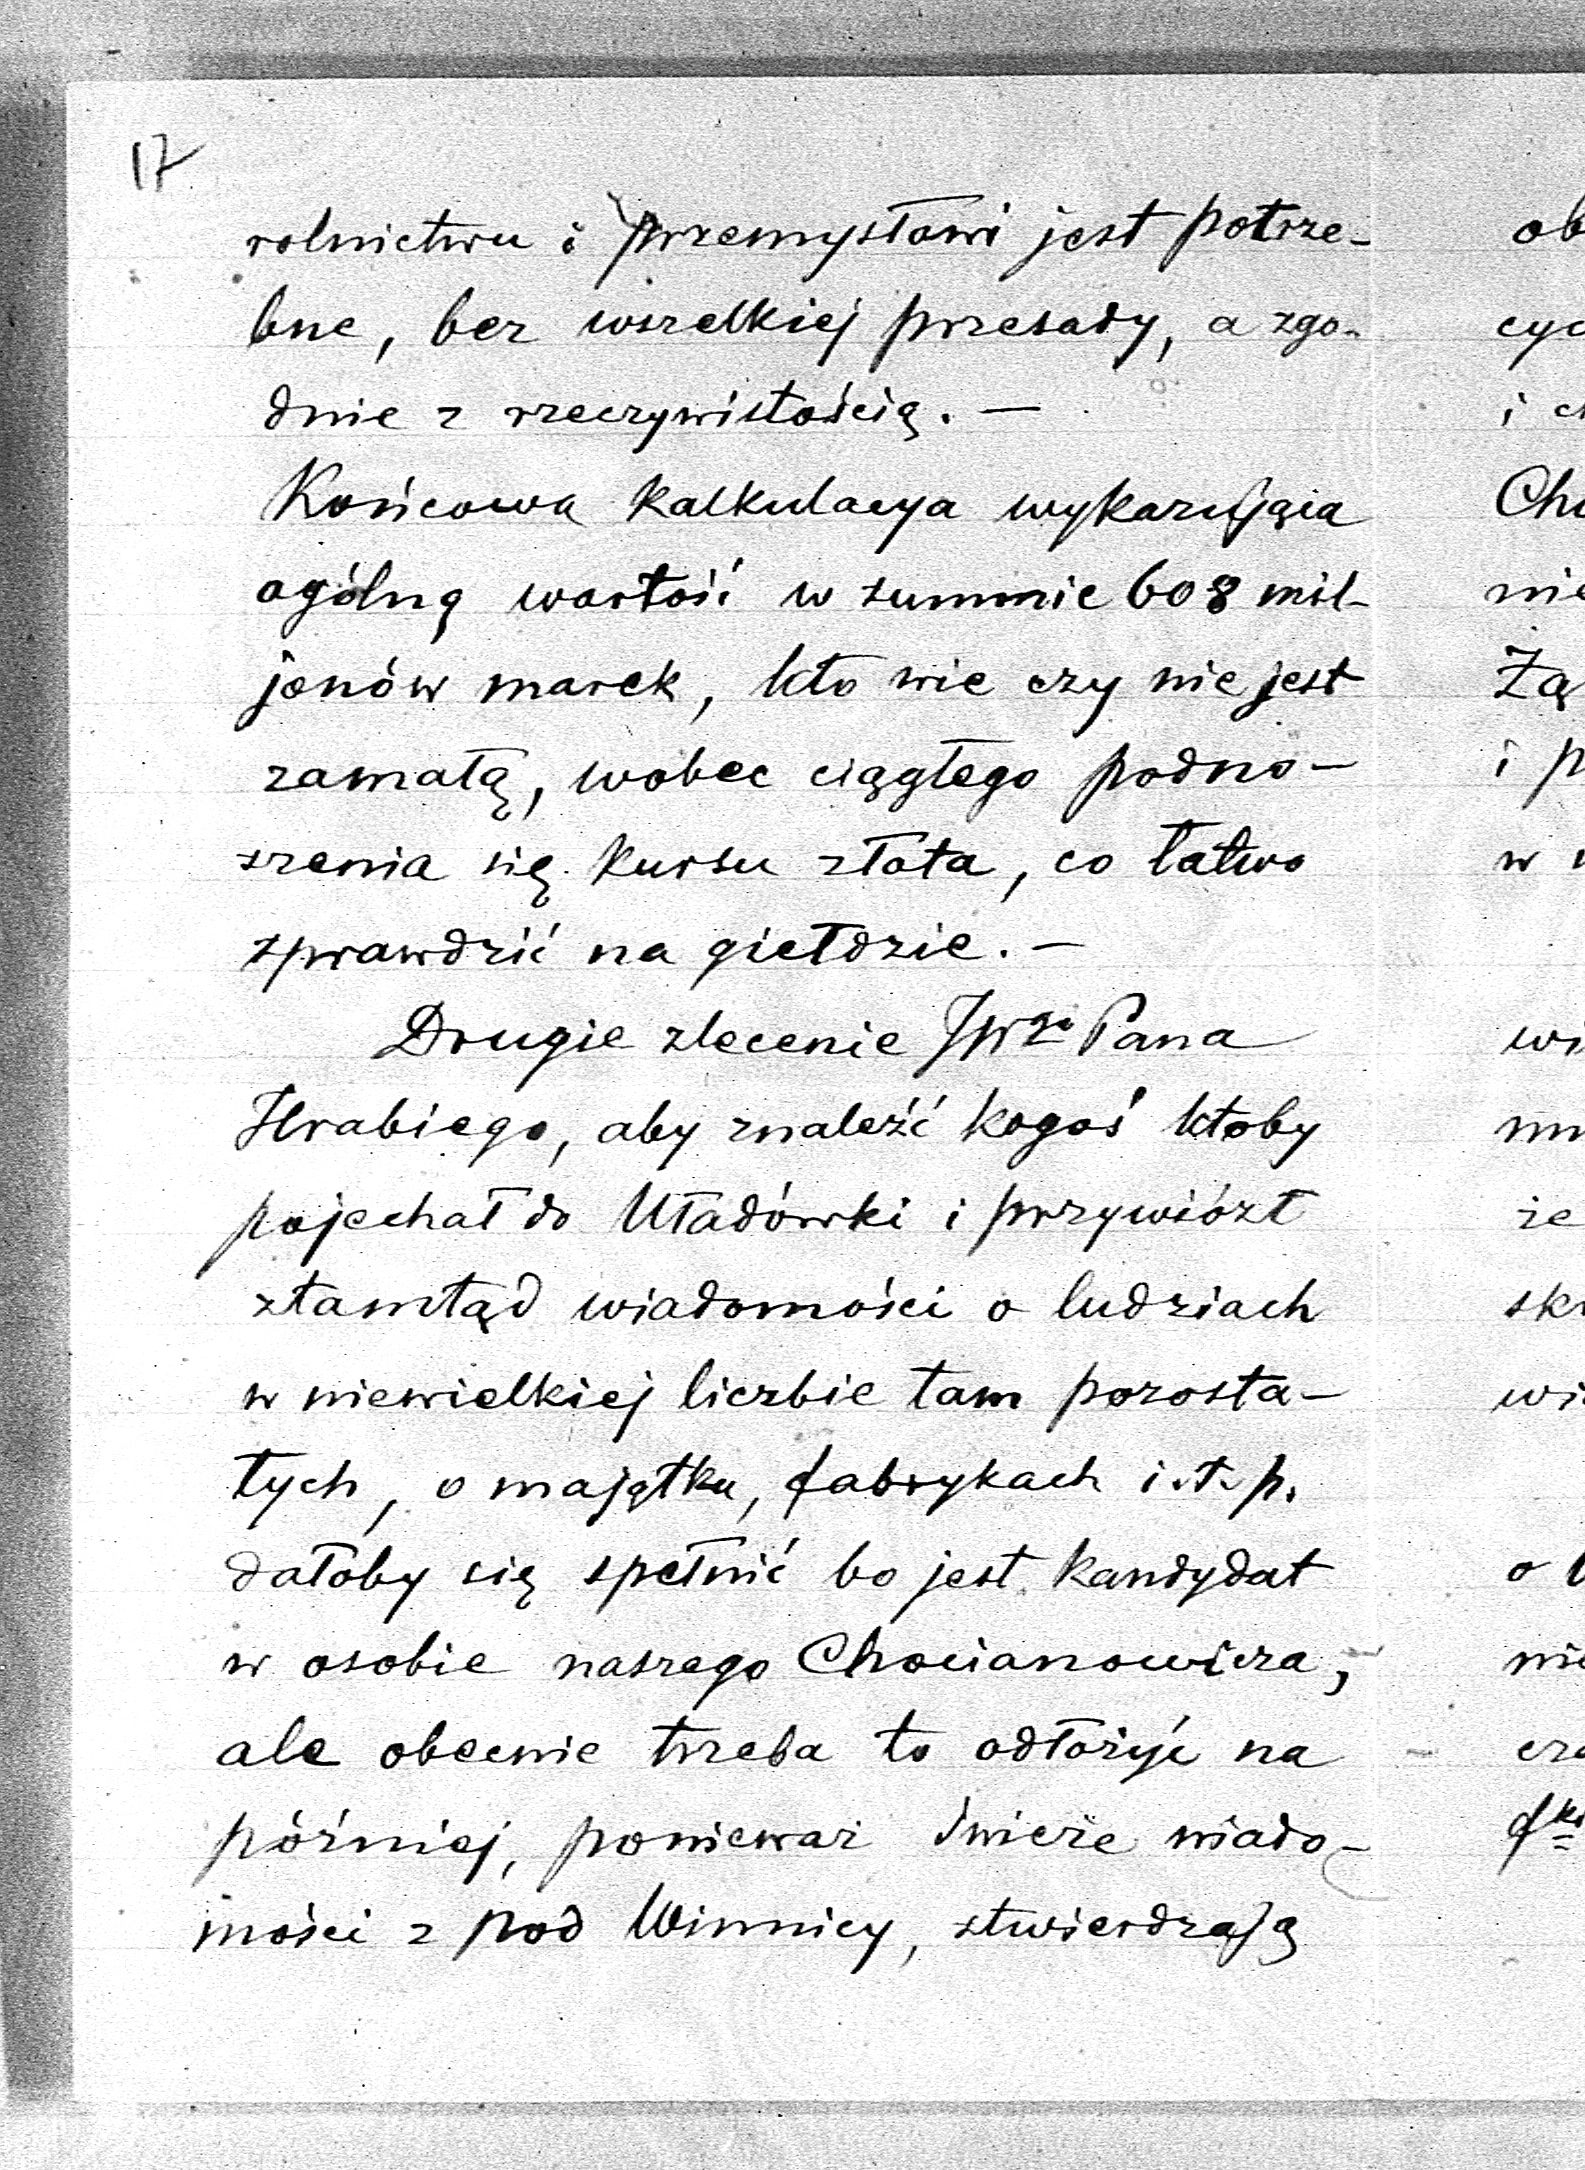 17
rolnictwu i przemysłowi jest potrze-
bne, bez wszelkiej przesady, a zgo-
dnie z rzeczywistością. —
Końcowa kalkulacya wykazująca
ogólną wartość w summie 608 mil-
jonów marek, kto wie czy nie jest
zamałą, wobec ciągłego podno-
szenia się kursu złota, co łatwo
sprawdzić na giełdzie. —
Drugie zlecenie JWgo Pana
Hrabiego, aby znaleźć kogoś ktoby
pojechał do Uładówki i przywiózł
ztamtąd wiadomości o ludziach
w niewielkiej liczbie tam pozosta-
łych, o majątku, fabrykach i.t.p.
dałoby się spełnić bo jest kandydat
w osobie naszego Chocianowicza,
ale obecnie trzeba to odłożyć na
później, ponieważ świeże wiado-
mości z pod Winnicy, stwierdzają